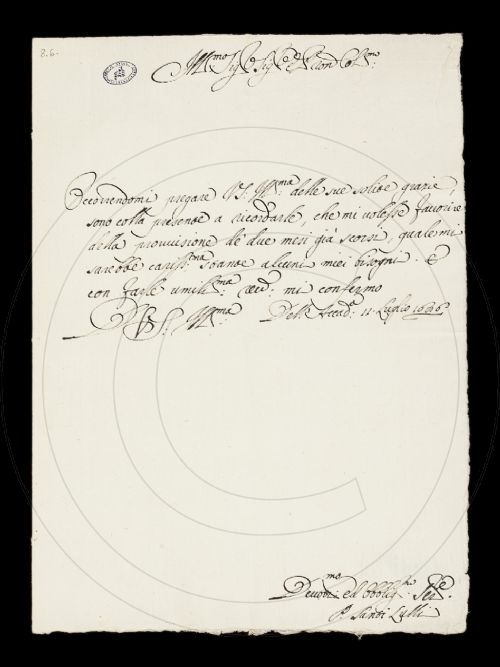 8.6.
Ill:mo Sig:re Sig:re e P:ron Col:mo
Occorrendomi pregare V.S. Ill:ma delle sue solite grazie,
sono colla presente a ricordarle, che mi volesse favorire
della provvisione de due mesi già scorsi, quale mi
sarebbe cariss:ma stante alcuni miei bisogni. E
con farle umiliss:ma river: mi confermo
Di V.S. Ill:ma Dell' Accad: 11 Luglio
Devotis:mo ed Obblig:mo Ser:re
P. Santi Lulli